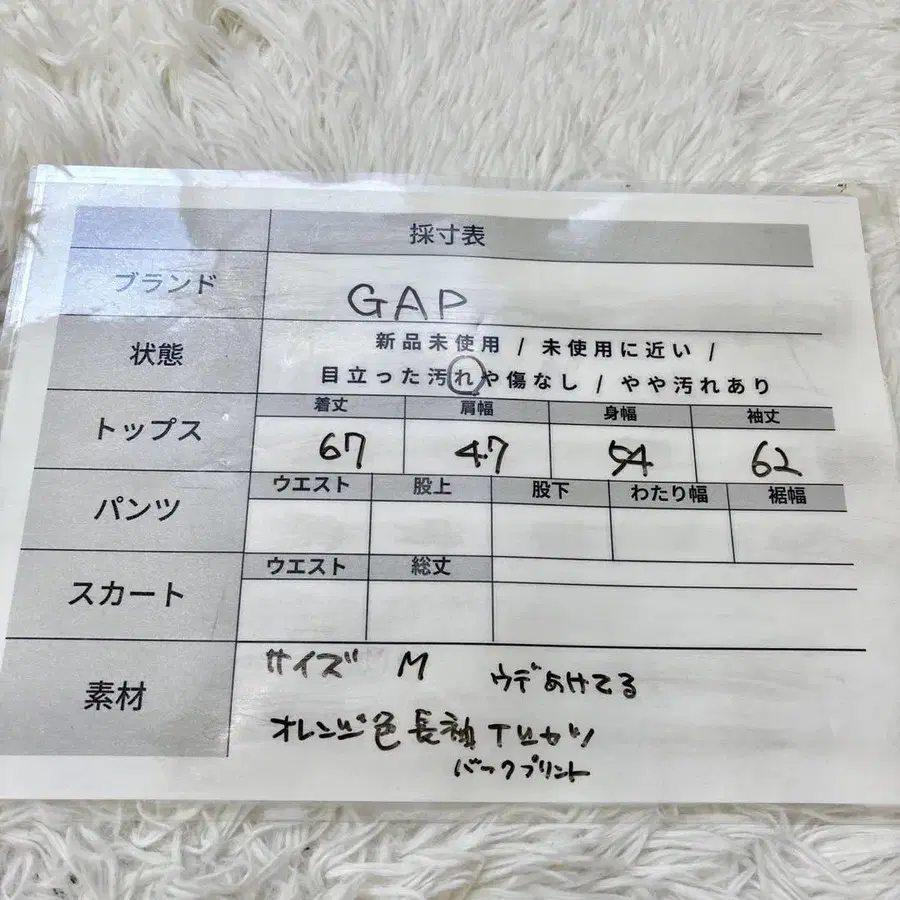 採寸表
ブランド GAP
状態 新品未使用 / 未使用に近い /
目立った汚れや傷なし / やや汚れあり
トップス 着丈 肩幅 身幅 袖丈
67 47 54 62
パンツ ウエスト 股上 股下 わたり幅 裾幅
スカート ウエスト 総丈
素材 サイズ M ウデあけてる
オレンジ色 長袖 Tシャツ
バックプリント